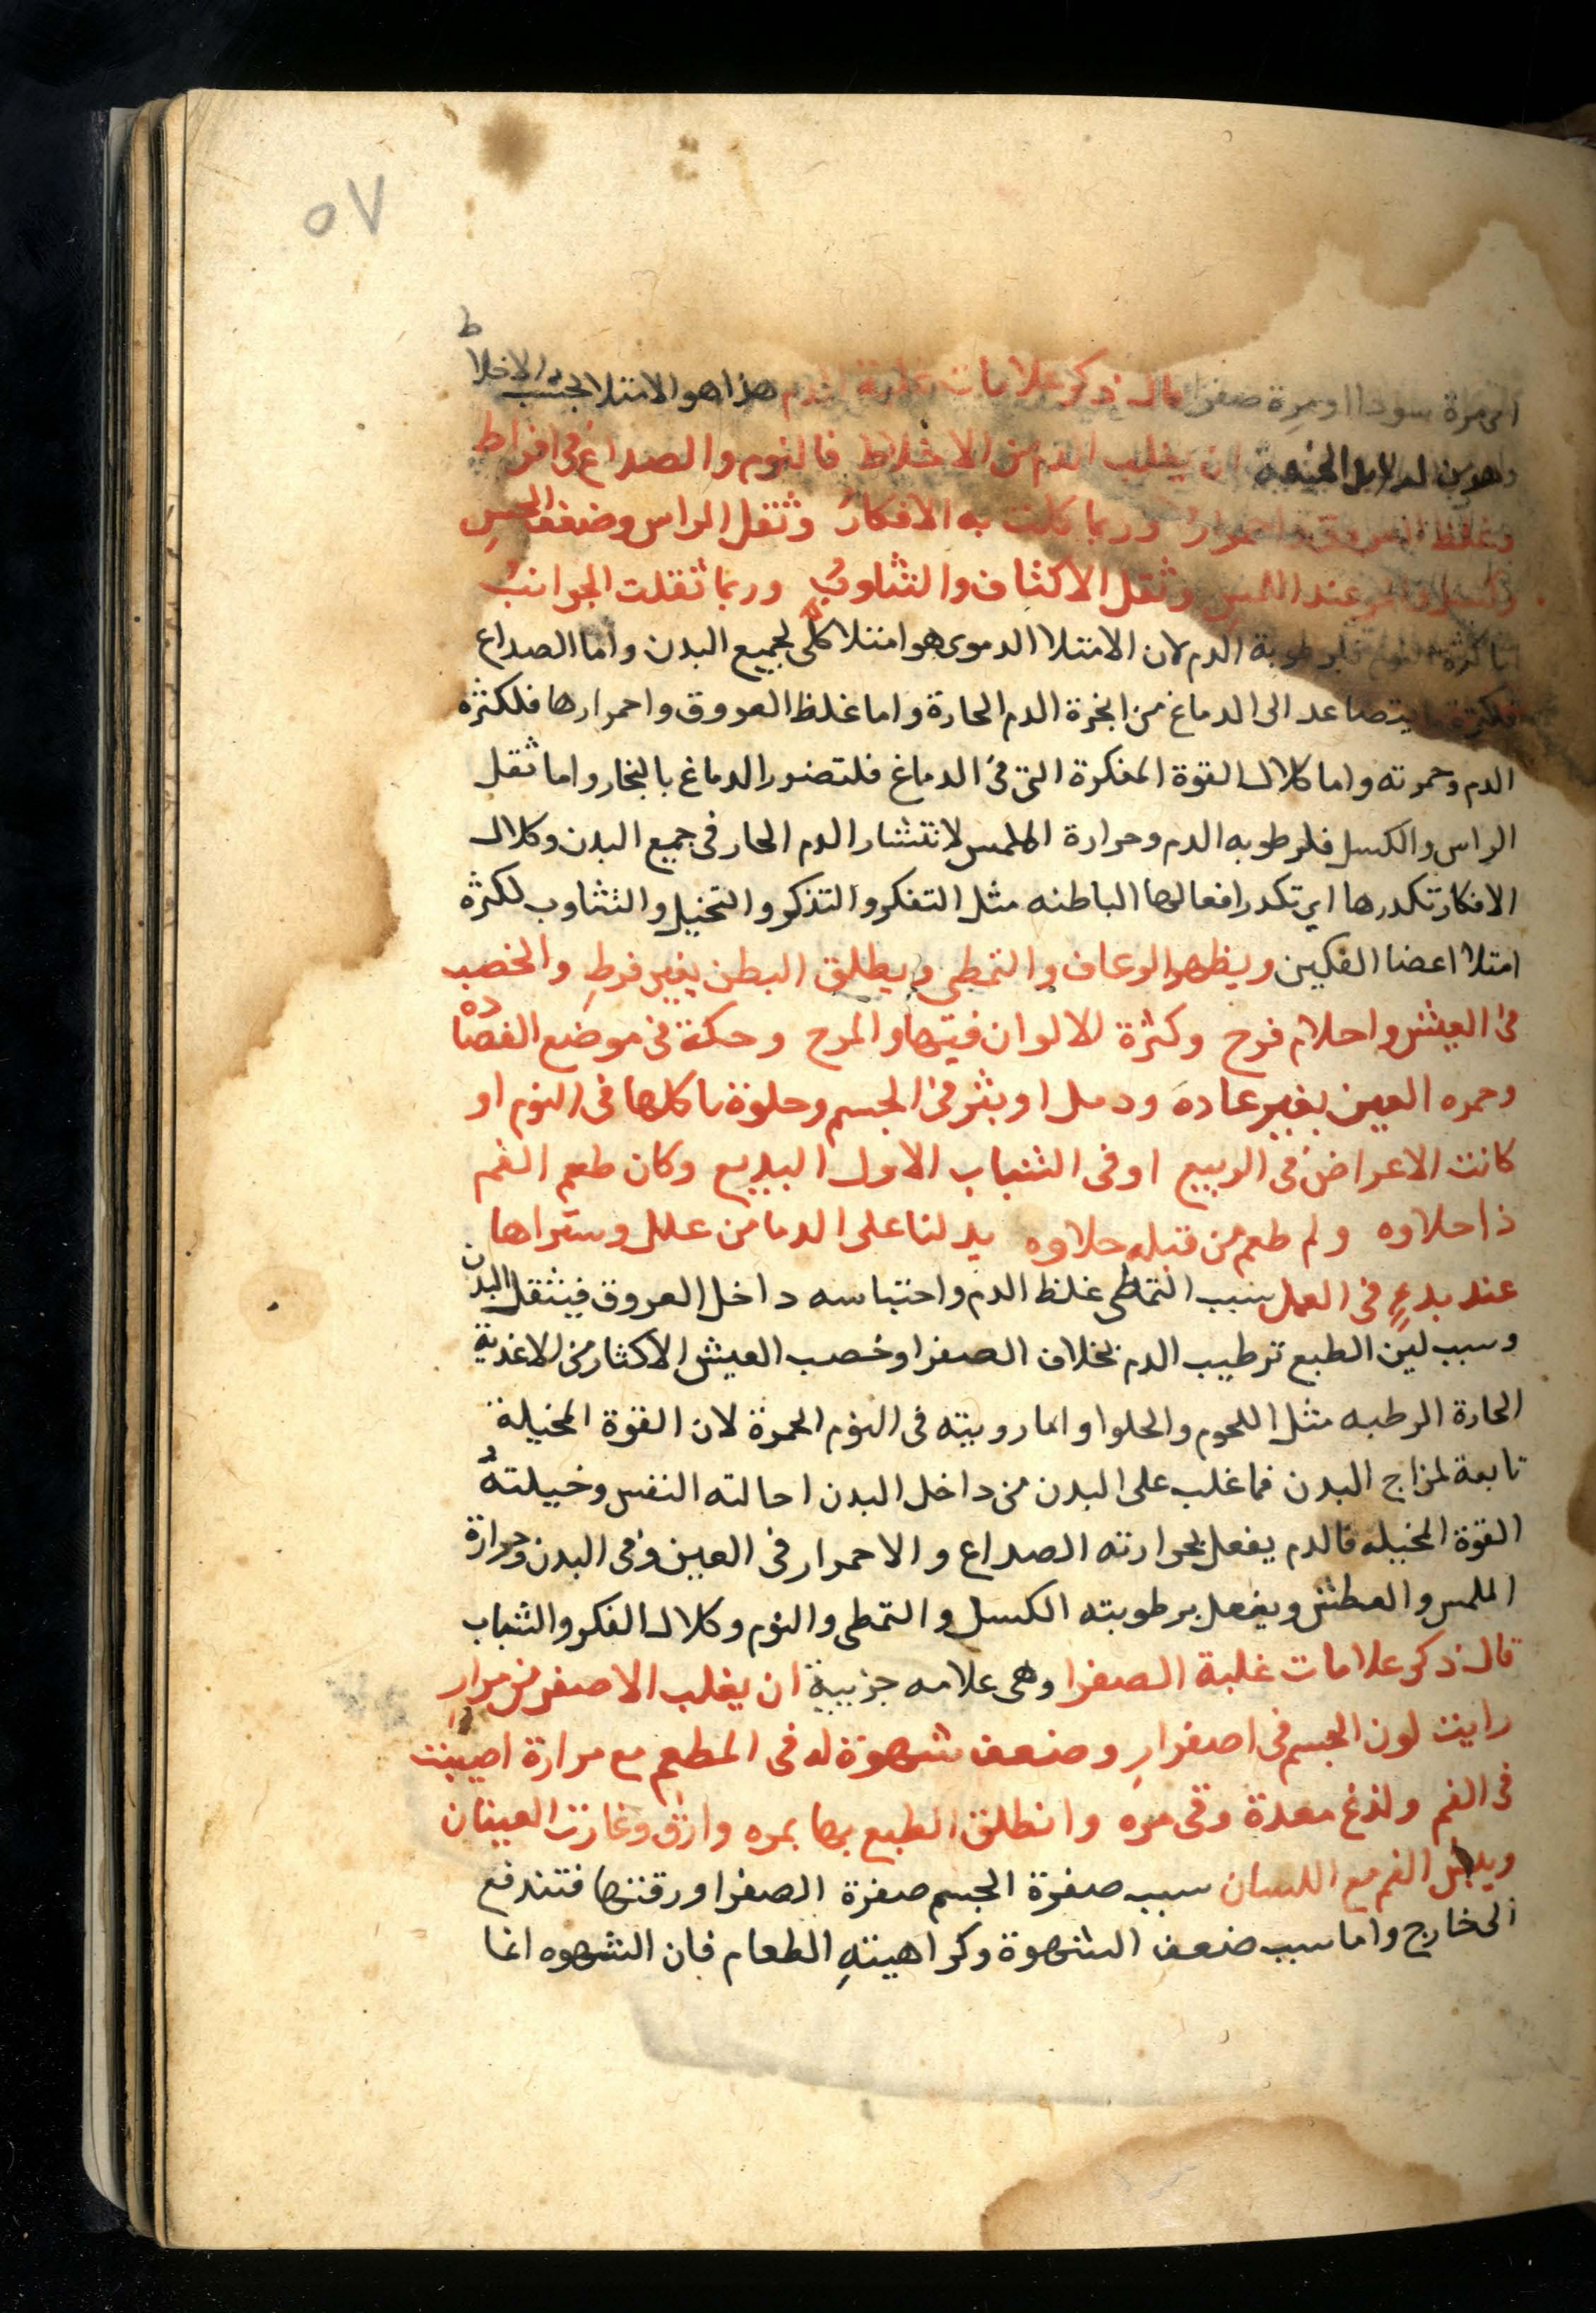 ٥٧
الى مرة سودا او مرة صفرا قال ذكر علامات غلبة الدم هذا هو الامتلا بحسب الاخلاط
وهو من الدلايل ان يغلب الدم من الاخلاط فالنوم والصداع في افراط
وغلظ العروق واحمرار وربما كلت به الافكار وثقل الراس وضعف الحس
عند اللمس وثقل الاكتاف والتثاوب وربما ثقلت الجوانب
اما كثرة النوم فلرطوبة الدم لان الامتلا الدموى هو امتلا كلى لجميع البدن واما الصداع
فلكثرة ما يتصاعد الى الدماغ من ابخرة الدم الحارة واما غلظ العروق واحمرارها فلكثرة
الدم وحمرته واما كلال القوة المفكرة التى فى الدماغ فلتضرر الدماغ بالبخار واما ثقل
الراس والكسل فلرطوبه الدم وحرارة الملمس لانتشار الدم الحار فى جميع البدن وكلال
الافكار تكدرها اى تكدر افعالها الباطنه مثل التفكر والتذكر والتخيل والتثاوب لكثرة
امتلا اعضا الفكين ويظهر الرعاف والتمطى ويطلق البطن بغير فرط والخصب
فى العيش واحلام فرح وكثرة الالوان فيها والمرح وحكة فى موضع الفصاده
وحمره العين بغير عاده ودمل او بثر فى الجسم وحلوة ياكلها فى النوم او
كانت الاعراض فى الربيع او فى الشباب الاول البديع وكان طعم الفم
ذا حلاوه ولم طعم من قبله حلاوه يدلنا على الدما من علل وستراها
عند بدء فى العمل سبب التمطى غلظ الدم واحتباسه داخل العروق فيثقل البدن
وسبب لين الطبع ترطيب الدم بخلاف الصفرا وخصب العيش الاكثار من الاغذية
الحارة الرطبه مثل اللحوم والحلوا وانما رويته فى النوم الحمرة لان القوة المخيلة
تابعة لمزاج البدن فما غلب على البدن من داخل البدن احالته النفس وخيلته
القوة المخيله فالدم يفعل بحرارته الصداع والاحمرار فى العين وفى البدن وحرارة
الملمس والعطش ويفعل برطوبته الكسل والتمطى والنوم وكلال الفكر والشباب
قال ذكر علامات غلبة الصفرا وهى علامه جزيية ان يغلب الاصفر من مرار
رايت لون الجسم فى اصفرار وضعف شهوة له فى المطعم مع مرارة اصيبت
فى الفم ولذغ معدة وقى مره وانطلق الطبع بها بمره وارق وغارت العينان
ويبس الفم مع اللسان سبب صفرة الجسم صفرة الصفرا ورقتها فتندفع
الى خارج واما سبب ضعف الشهوة وكراهيته الطعام فان الشهوه انما